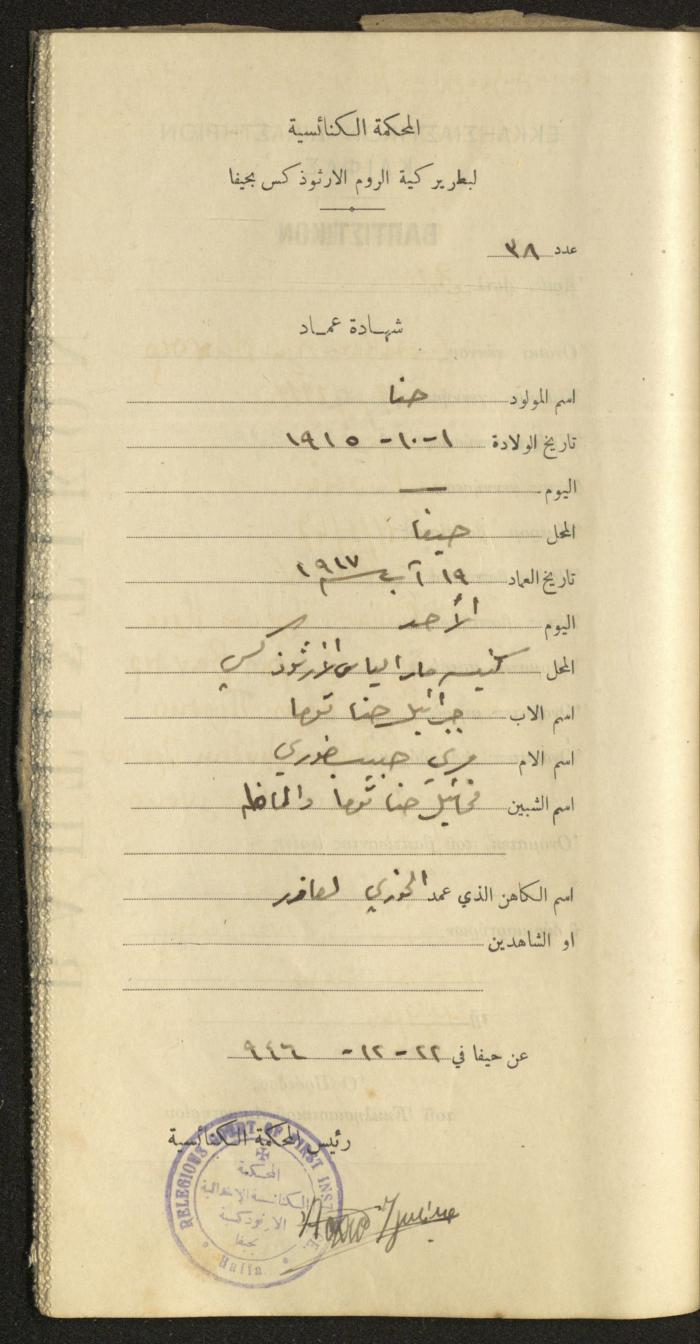 المحكمة الكنائسية
لبطريركية الروم الارثوذكس بحيفا
عدد ٣٨
شهادة عماد
اسم المولود حنا
تاريخ الولادة ١-١٠- ١٩١٥
اليوم —
المحل حيفا
تاريخ العماد ١٩ آب سنة ١٩١٧
اليوم الأحد
المحل كنيسة مار الياس الارثوذكسي
اسم الاب جبرائيل حنا توما
اسم الام مري حبيب خوري
اسم الشبين مخائيل حنا توما
اسم الكاهن الذي عمد الخوري
او الشاهدين
عن حيفا في ٢٢-١٢- ٩٤٦
رئيس المحكمة الكنائسية
RELEGIOUS COURT OF FIRST INST
المحكمة
الكنائسية الابتدائية
الارثوذكسية
بحيفا
Haifa